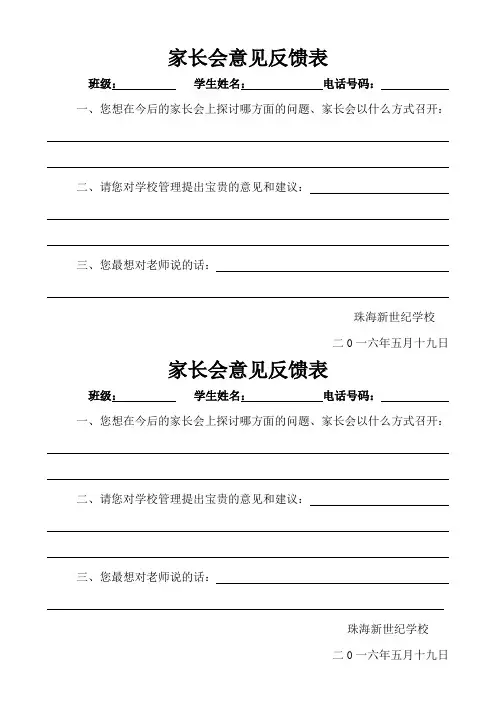 家长会意见反馈表
班级： 学生姓名： 电话号码：
一、您想在今后的家长会上探讨哪方面的问题、家长会以什么方式召开：
二、请您对学校管理提出宝贵的意见和建议：
三、您最想对老师说的话：
珠海新世纪学校
二0一六年五月十九日
家长会意见反馈表
班级： 学生姓名： 电话号码：
一、您想在今后的家长会上探讨哪方面的问题、家长会以什么方式召开：
二、请您对学校管理提出宝贵的意见和建议：
三、您最想对老师说的话：
珠海新世纪学校
二0一六年五月十九日